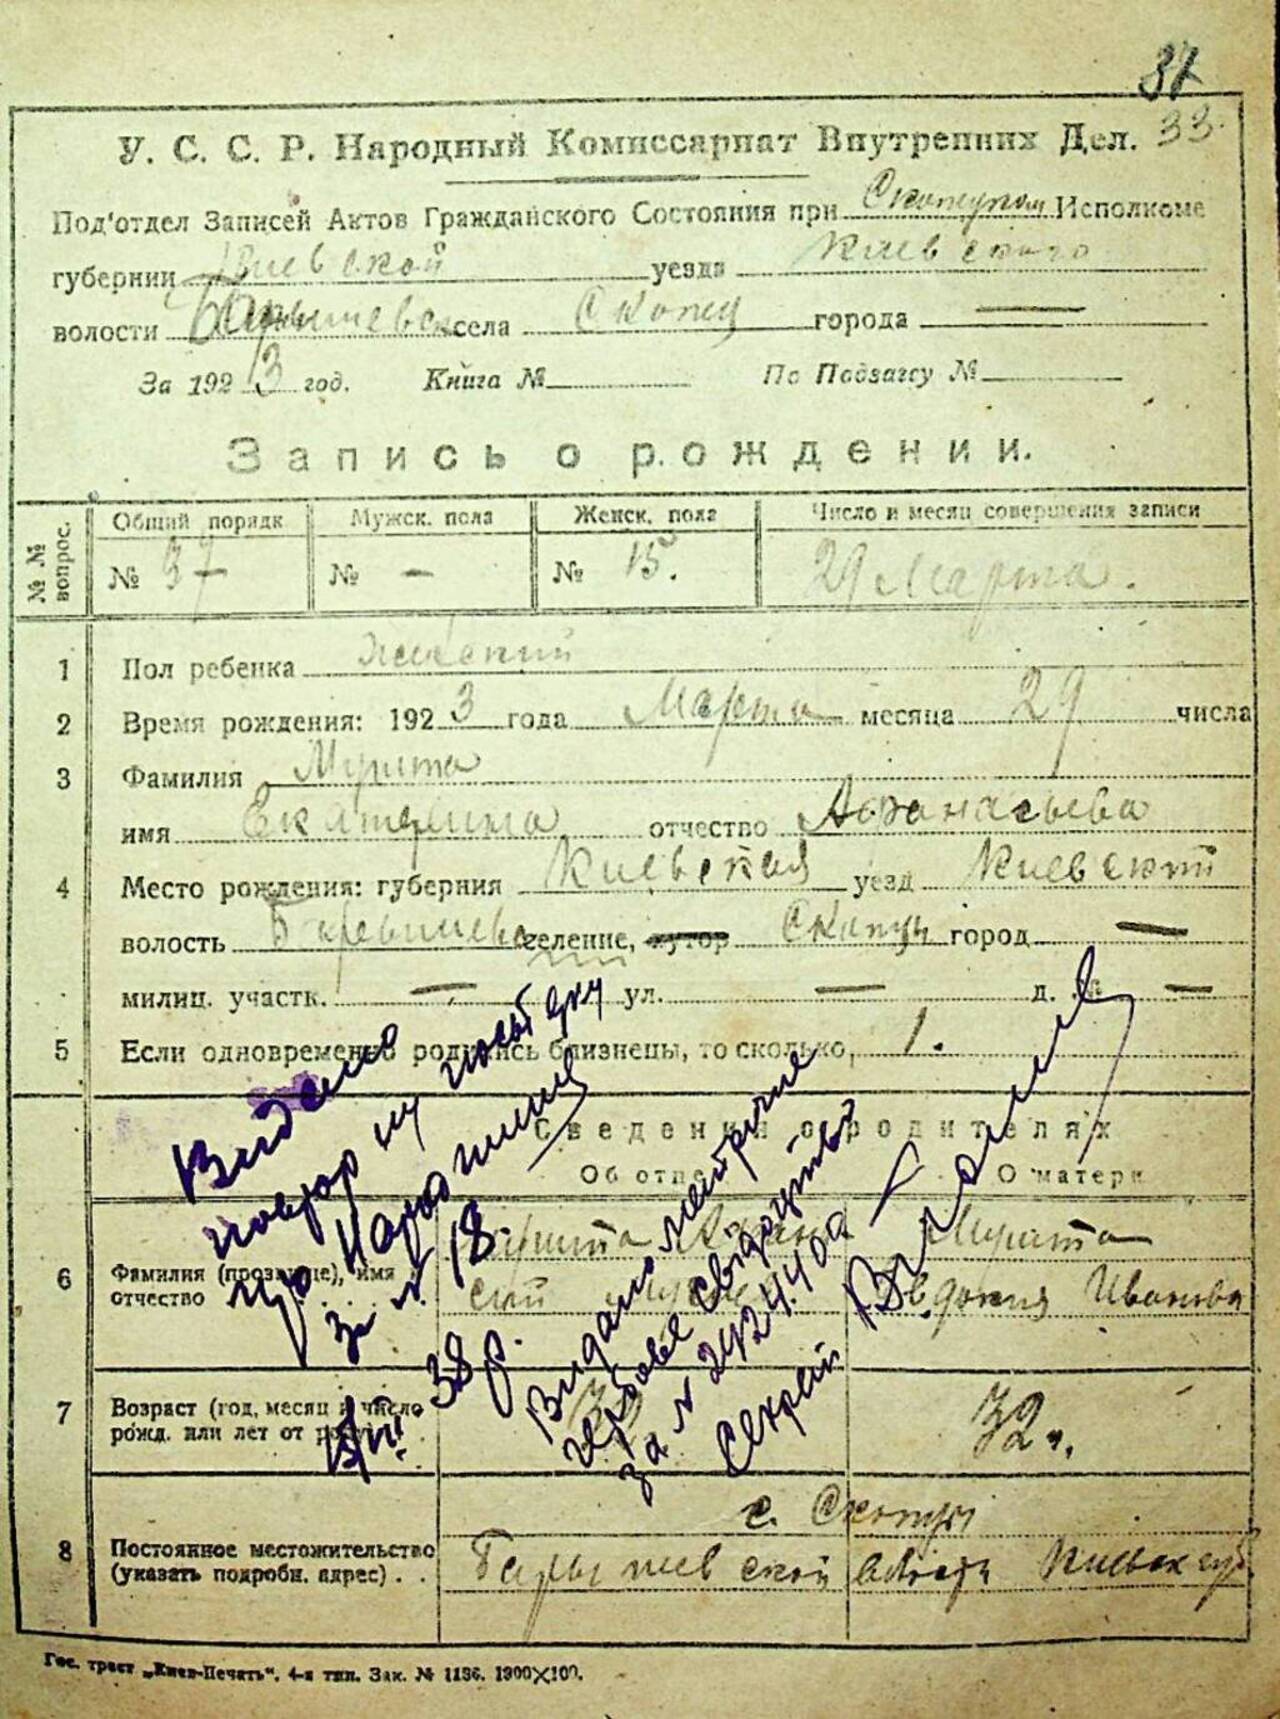 37
33
У. С. С. Р. Народный Комиссариат Внутренних Дел.
Под'отдел Записей Актов Гражданского Состояния при Исполкоме
губернии Киевской уезда Киевского
волости села Скопец города —
За 1923 год. Книга № По Подзагсу №
Запись о рождении.
№ № вопрос.
Общий порядк Мужск. пола Женск. пола Число и месяц совершения записи
№ 37 — № — № 15. 29 Марта.
1 Пол ребенка женский
2 Время рождения: 1923 года Марта месяца 29 числа
3 Фамилия Мурита
имя Екатерина отчество Афанасьева
4 Место рождения: губерния Киевская уезд Киевский
волость селение, хутор город —
милиц. участк. — ул. — д. № —
5 Если одновременно родились близнецы, то сколько, 1.
Сведения о родителях
Об отце О матери
6 Фамилия (прозвище), имя отчество
Мурита
Евдокия Иванова
7 Возраст (год, месяц и число рожд. или лет от роду)
32 л.
8 Постоянное местожительство (указать подробн. адрес) . .
с.
Барышевской волости Киевск губ.
Видано
повтор ну
за № 18.
38 р.
Видано метричне
гербове свідоцтво
за №
Секрет
Гос. трест „Киев-Печать“. 4-я тип. Зак. № 1136. 1300×100.